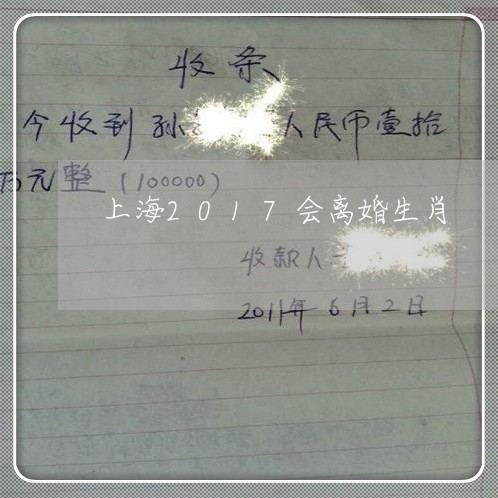 收条
今收到孙 人民币壹拾
万元整（100000）
上海2017会离婚生肖
收款人
2011年6月2日